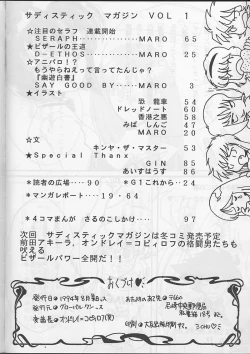 サディスティック マガジン VOL 1
☆注目のセラフ 連載開始
SERAPH―― MARO 65
★ビザールの王道
D-ETHOS―― MARO 25
★アニパロ!?
もうやらねえって言ってたんじゃ?
『幽遊白書』
SAY GOOD BY―― MARO 3
★イラスト
恐 龍車 54
ドレッドノート 60
香港之悪 58
みば しんご 47
MARO 20
☆文
キンヤ・ザ・マスター 63
★Special Thanx
GIN 85
あいすはうす 86
*読者の広場――90 *G1これから―― 24
*マンガレポート――19・64
*4コマまんが さるのこしかけ―― 97
次回 サディスティックマガジンは冬コミ発売予定
前田アキーラ、オンドレイ=コピィロフの格闘男たちも
吠える
ビザールパワー全開だ!!
おくづけ